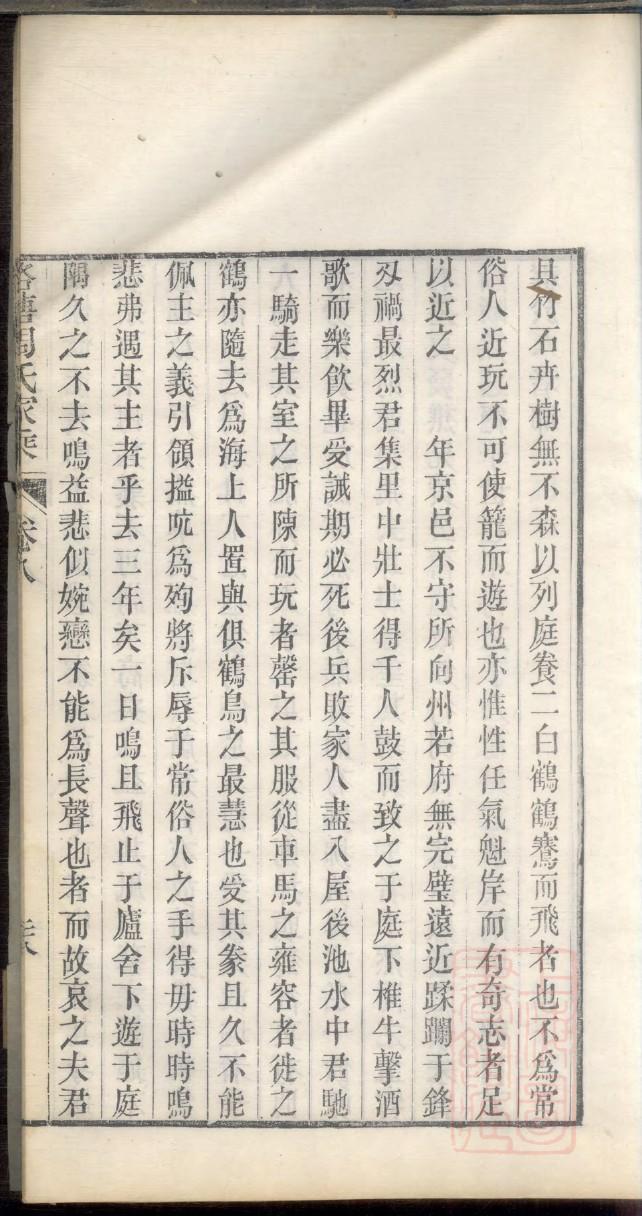 具竹石卉樹無不森以列庭養二白鶴鶴鶱而飛者也不爲常
俗人近玩不可使籠而遊也亦惟性任氣魁岸而有奇志者足
以近之　年京邑不守所向州若府無完璧遠近蹂躪于鋒
刃禍最烈君集里中壯士得千人鼓而致之于庭下椎牛擊酒
歌而樂飲畢爰誠期必死後兵敗家人盡入屋後池水中君馳
一騎走其室之所陳而玩者罄之其服從車馬之雍容者徙之
鶴亦隨去爲海上人置與俱鶴鳥之最慧也受其豢且久不能
佩主之義引領搤吭爲殉將斥辱于常俗人之手得毋時時鳴
悲弗遇其主者乎去三年矣一日鳴且飛止于廬舍下遊于庭
隅久之不去鳴益悲似婉戀不能爲長聲也者而故哀之夫君
周氏家乘　卷八　三六